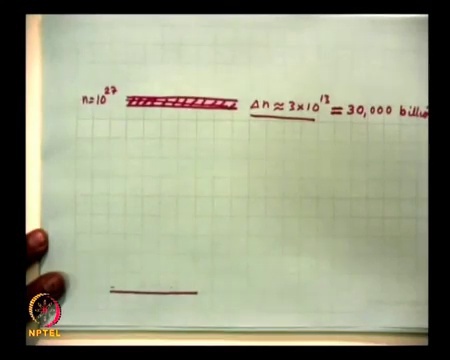 n=10²⁷ Δn ≈ 3×10¹³ = 30,000
NPTEL